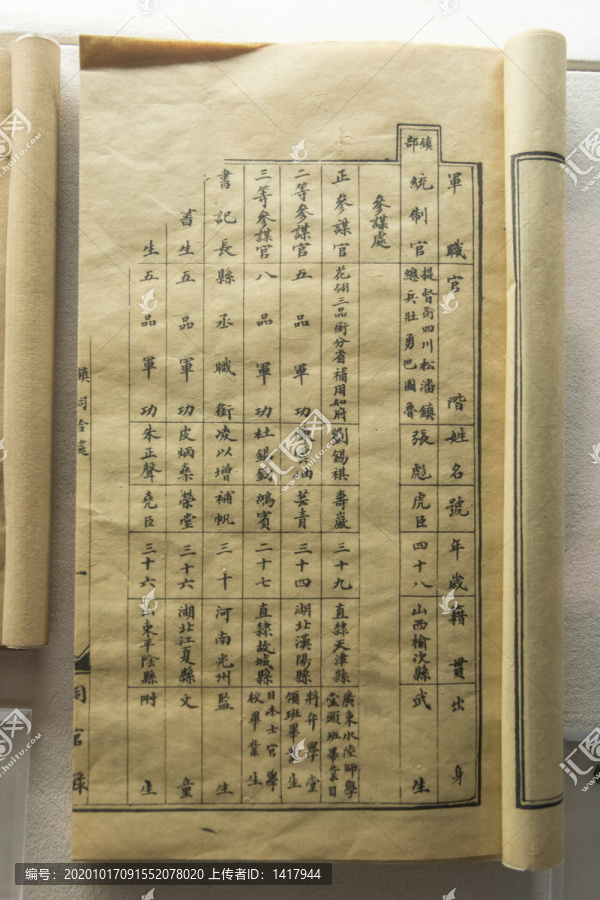 鎮部
軍職官階姓名號年歲籍貫出身
統制官提督銜四川松潘鎮總兵壯勇巴圖魯張彪虎臣四十八山西榆次縣武生
參謀處
正參謀官花翎三品銜分省補用知府劉錫祺壽巖三十九直隸天津縣廣東水陸師學堂頭班畢業
二等參謀官五品軍功青三十四湖北漢陽縣將弁學堂領班畢業生
三等參謀官八品軍功杜錫鈞鴻賓二十七直隸故城縣日本士官學校畢業生
書記長縣丞職銜凌以增補帆三十河南光州監生
書生五品軍功皮炳榮堂三十六湖北江夏縣文童
生五品軍功朱正聲堯臣三十六山東平陰縣附生
鎮司
一
同官錄
编号：20201017091552078020 上传者ID：1417944
汇图网
www.huitu.com